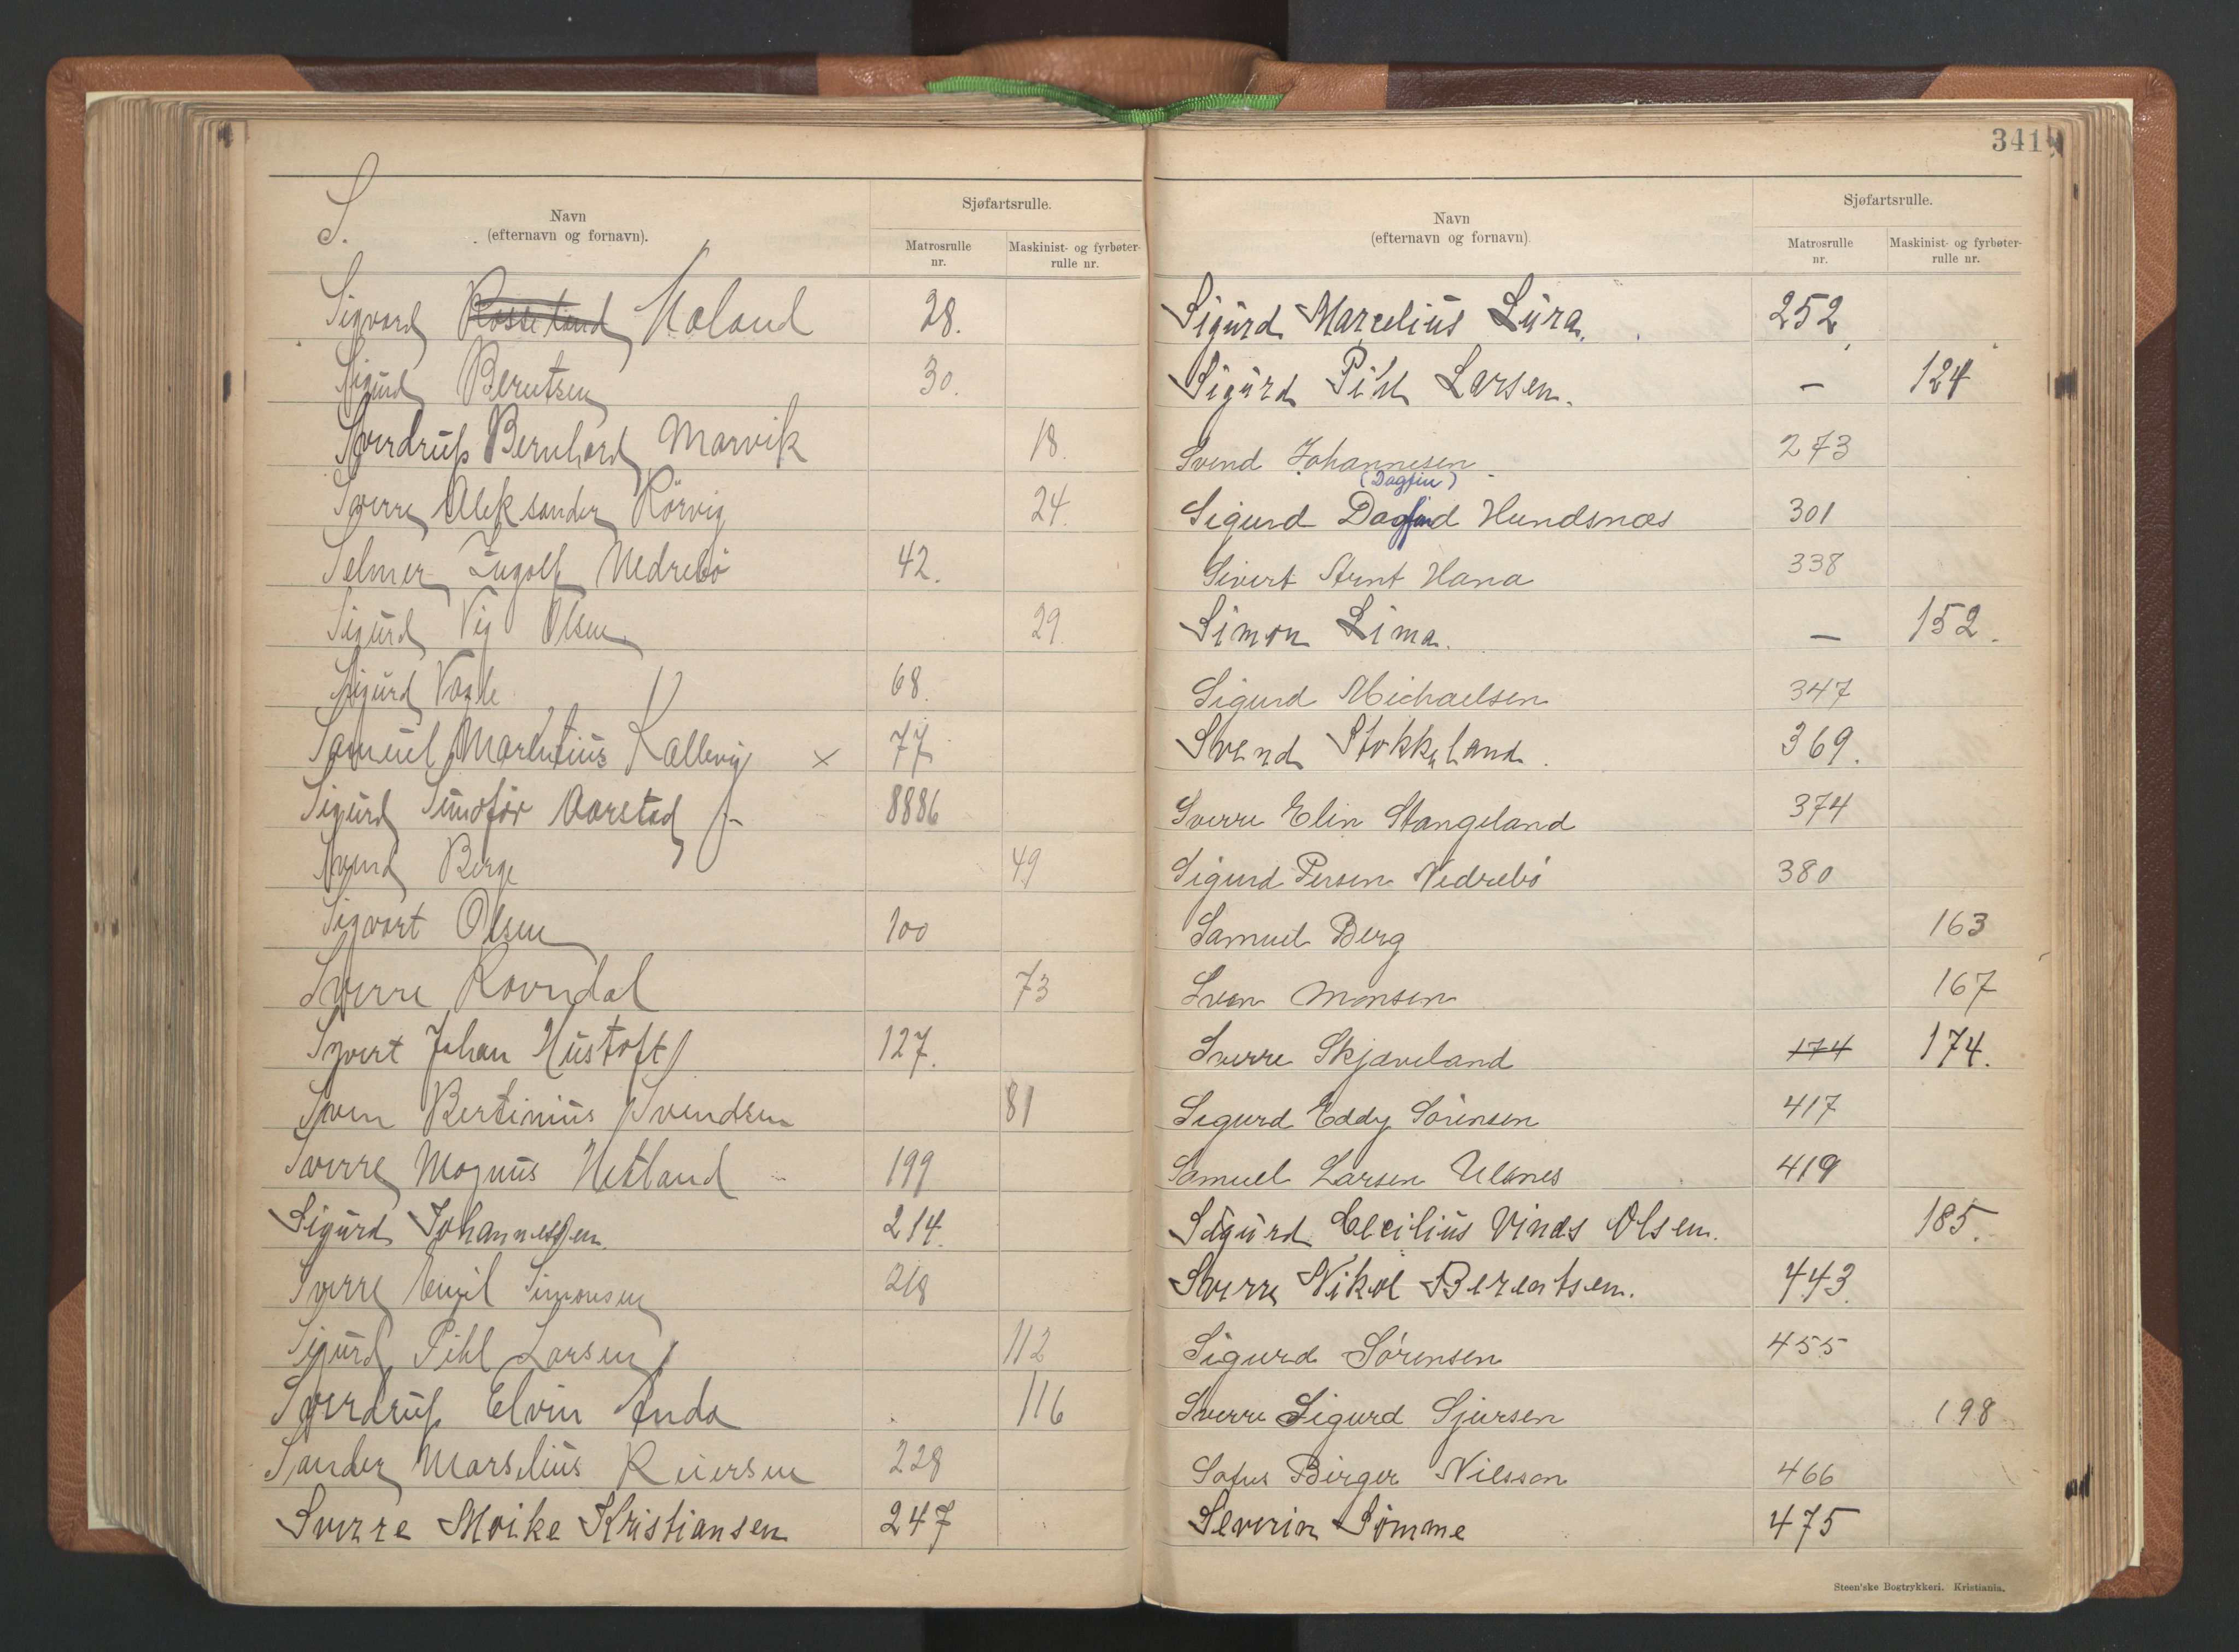 S.
Navn
(efternavn og fornavn).
Sjøfartsrulle.
Matrosrulle
nr.
Maskinist- og fyrbøter-
rulle nr.
Sigvard Rosseland Høland 28.
Sigurd Berntsen 30.
Sverdrup Bernhard Marvik 18.
Sverre Aleksander Rörvig 24.
Selmer Ingolf Nedrebö 42.
Sigurd Vig Olsen 29
Sigurd Vasle 68.
Samuel Martinius Kallevig x 77
Sigurd Sundför Aarstad 8886
Svend Berge 49
Sigvart Olsen 100
Sverre Ravndal 73
Syvert Johan Hustoft 127.
Sven Bertinius Svendsen 81
Sverre Magnus Hetland 199
Sigurd Johannessen. 214.
Sverre Emil Simonsen 218
Sigurd Pihl Larsen 112
Sverdrup Elvin Anda 116
Sander Marselius Reiersen 228
Sverre Moike Kristiansen 247
341
Navn
(efternavn og fornavn).
Sjøfartsrulle.
Matrosrulle
nr.
Maskinist- og fyrbøter-
rulle nr.
Sigurd Marcelius Lura. 252
Sigurd Pihl Larsen. — 124
Svend Johannesen. 273
(Dagfin)
Sigurd Dagfind Hundsnæs 301
Sivert Arnt Hana 338
Simon Lima. — 152.
Sigurd Michaelsen 347
Svend Stokkeland. 369.
Sverre Elin Stangeland 374
Sigurd Persen Nedrebö 380
Samuel Berg 163
Sven Monsen 167
Sverre Skjæveland 174 174.
Sigurd Eddy Sörensen 417
Samuel Larsen Ulsnes 419
Sigurd Cecilius Vinds Olsen. 185.
Sverre Nikol Berentsen. 443.
Sigurd Sörensen 455
Sverre Sigurd Sjursen 198
Sofus Birger Nilsson 466
Severin Sömme 475
Steen'ske Bogtrykkeri. Kristiania.